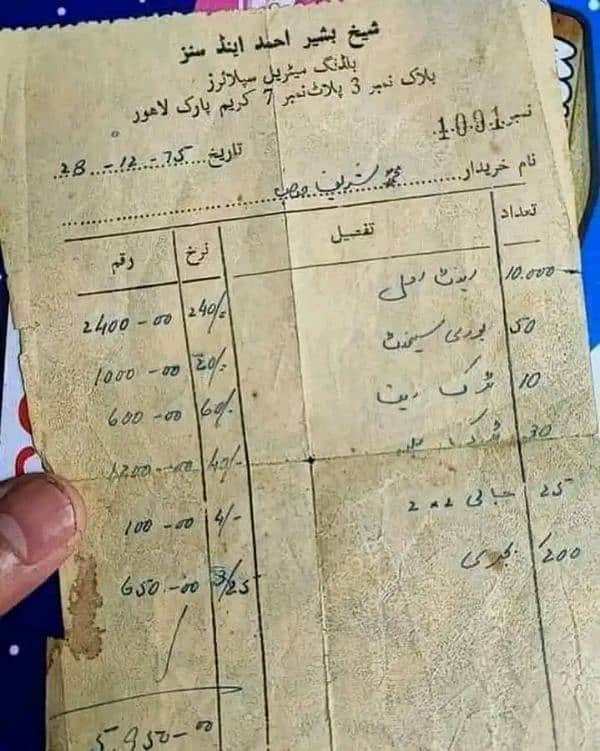 شیخ بشیر احمد اینڈ سنز
بلڈنگ میٹریل سپلائرز
بلاک نمبر 3 پلاٹ نمبر 7 کریم پارک لاہور
نمبر 1091
تاریخ 28-12-75
نام خریدار محمد شریف صاحب
تعداد تفصیل نرخ رقم
10.000 اول 240/- 2400-00
50 بوری سیمنٹ 20/- 1000-00
10 ٹرک ریت 60/- 600-00
30 ٹرک 40/- 1200-00
25 جالی 2x2 4/- 100-00
200 بجری 3/25 650-00
5,950-00